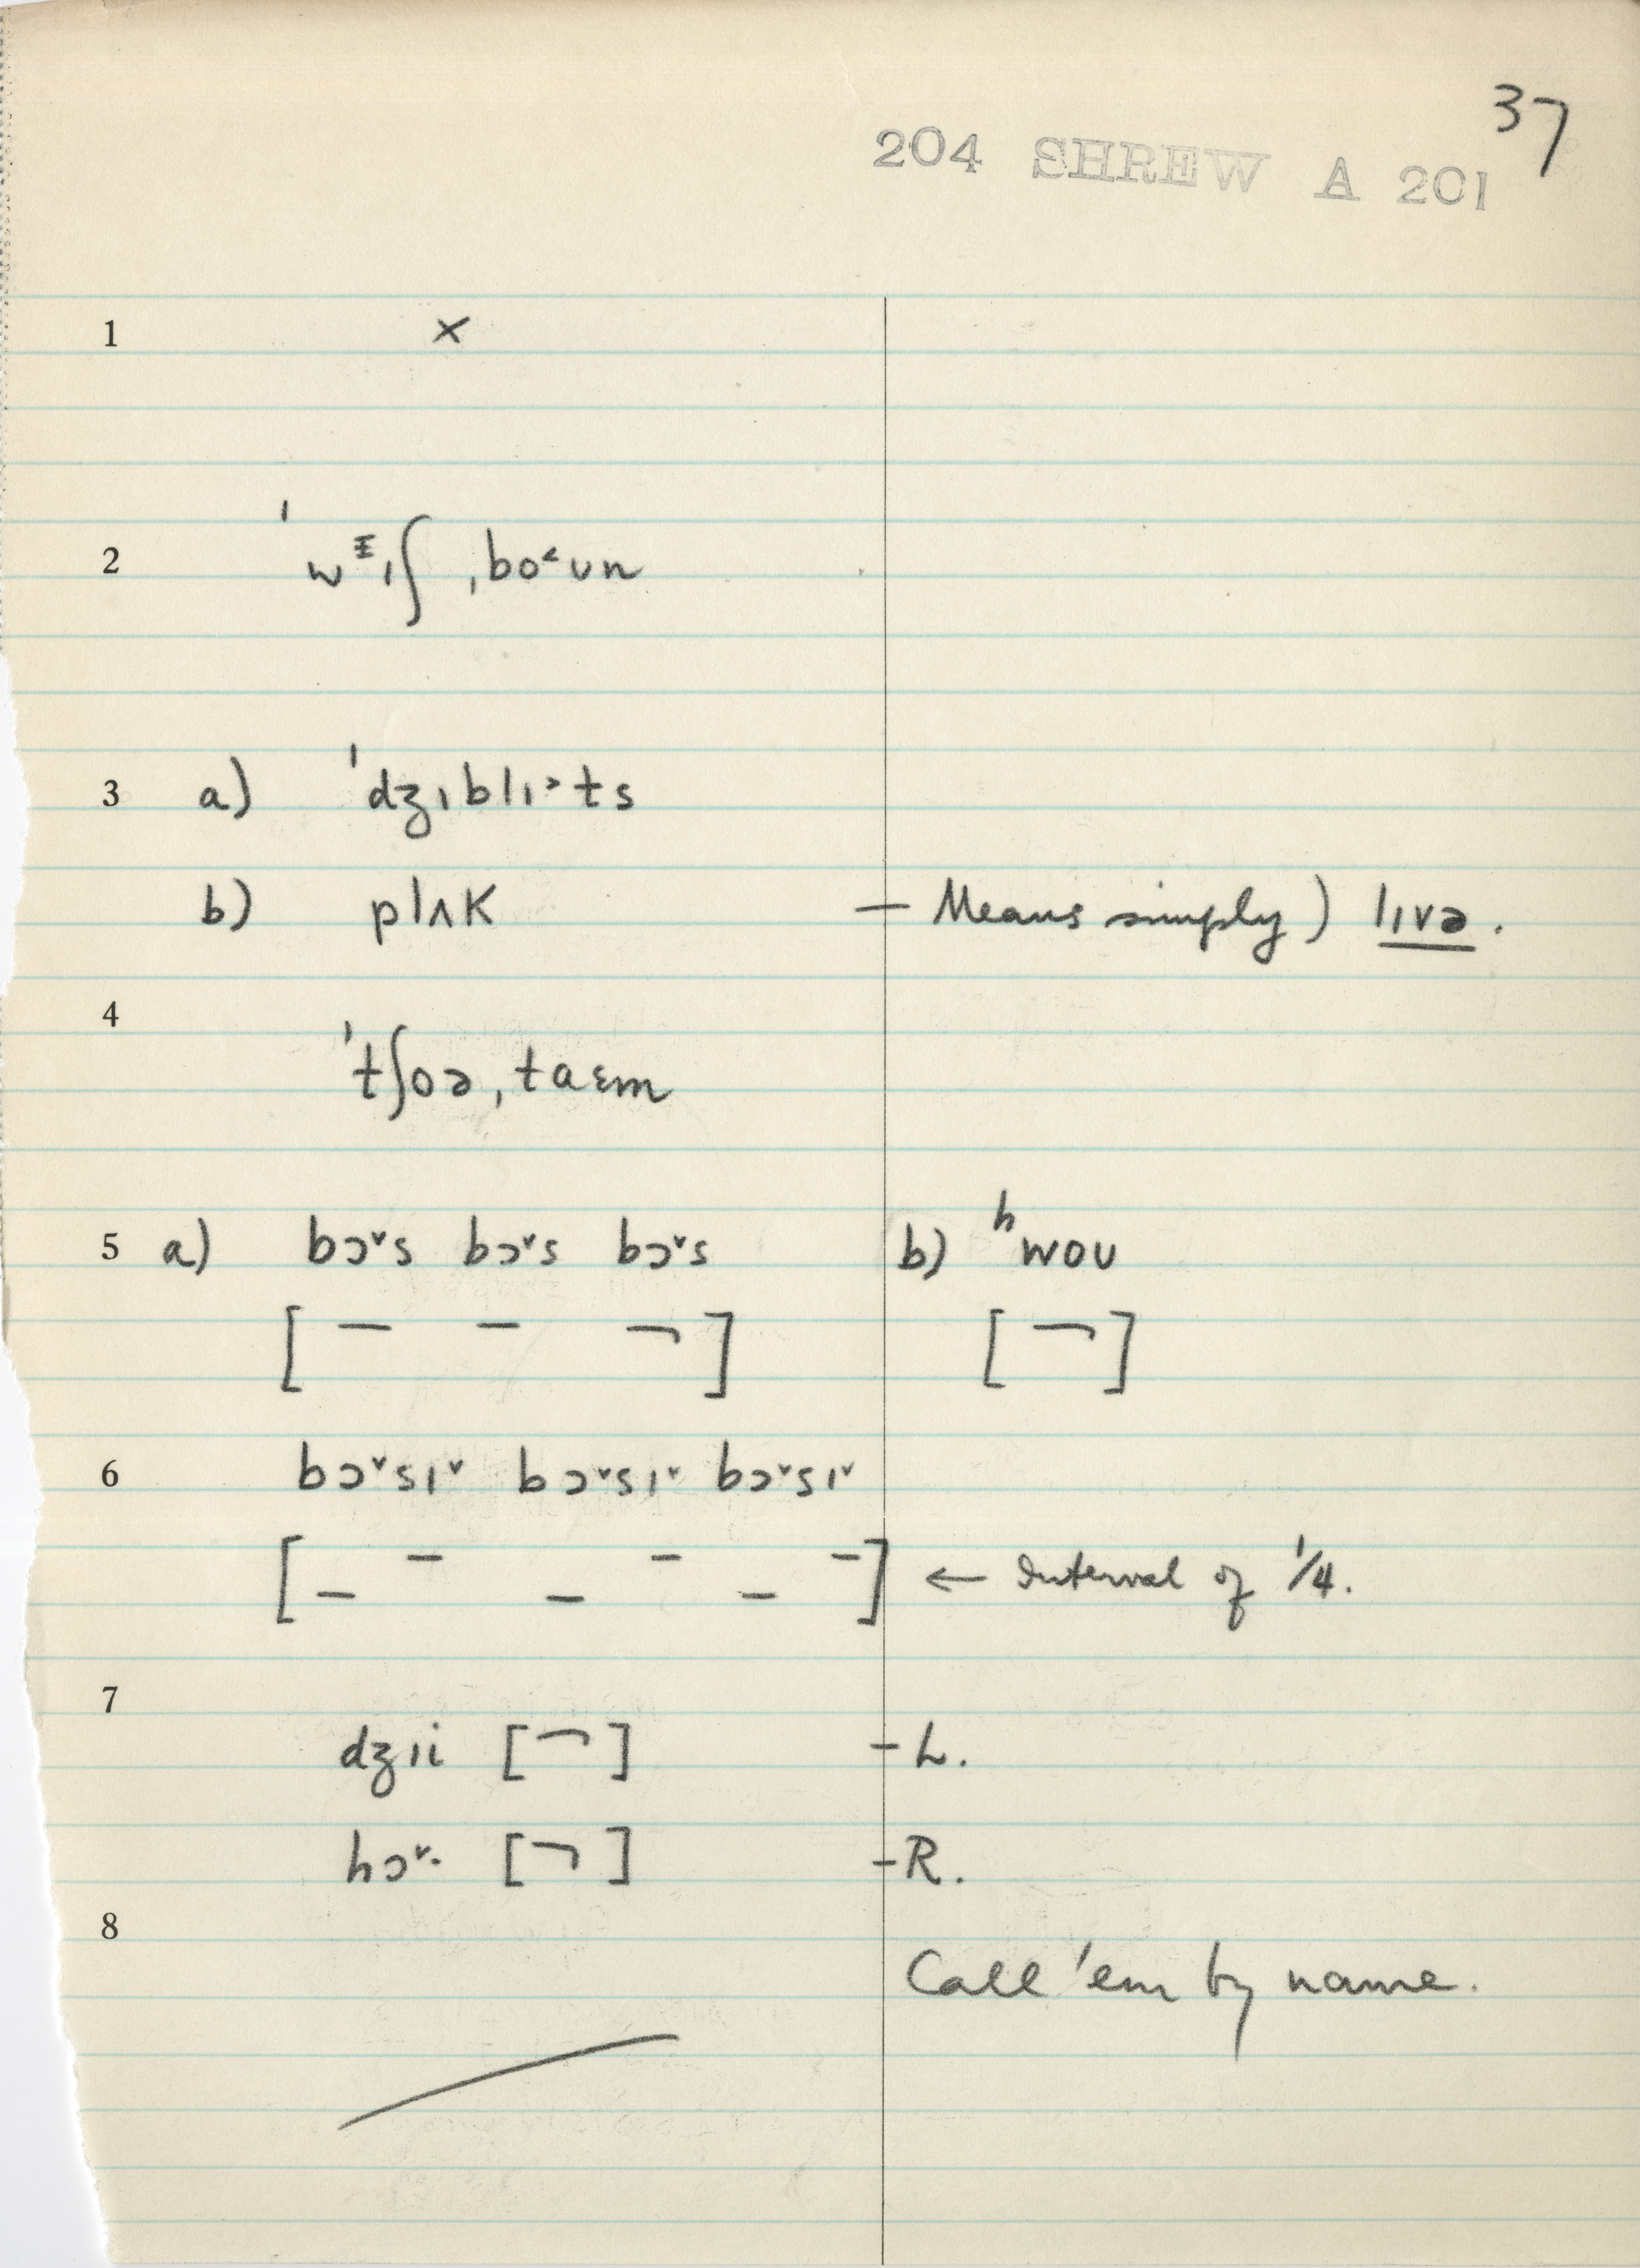 37
204 SHREW A 201
1 ×
2 ˈwᵻɪʃ ˌbo˂ʊn
3 a) ˈdʒɪblɪ˃ts
b) plʌk — Means simply) lɪvə.
4 ˈtʃoə ˌtaɛm
5 a) bɔ˅s bɔ˅s bɔ˅s b) ʰwoʊ
[ – – ¬ ] [ ¬ ]
6 bɔ˅sɪ˅ bɔ˅sɪ˅ bɔ˅sɪ˅
[ _ – _ – _ – ] ← Interval of 1/4.
7
dʒɪi [ ¬ ] - L.
hɔ˅· [ ¬ ] - R.
8
Call 'em by name.